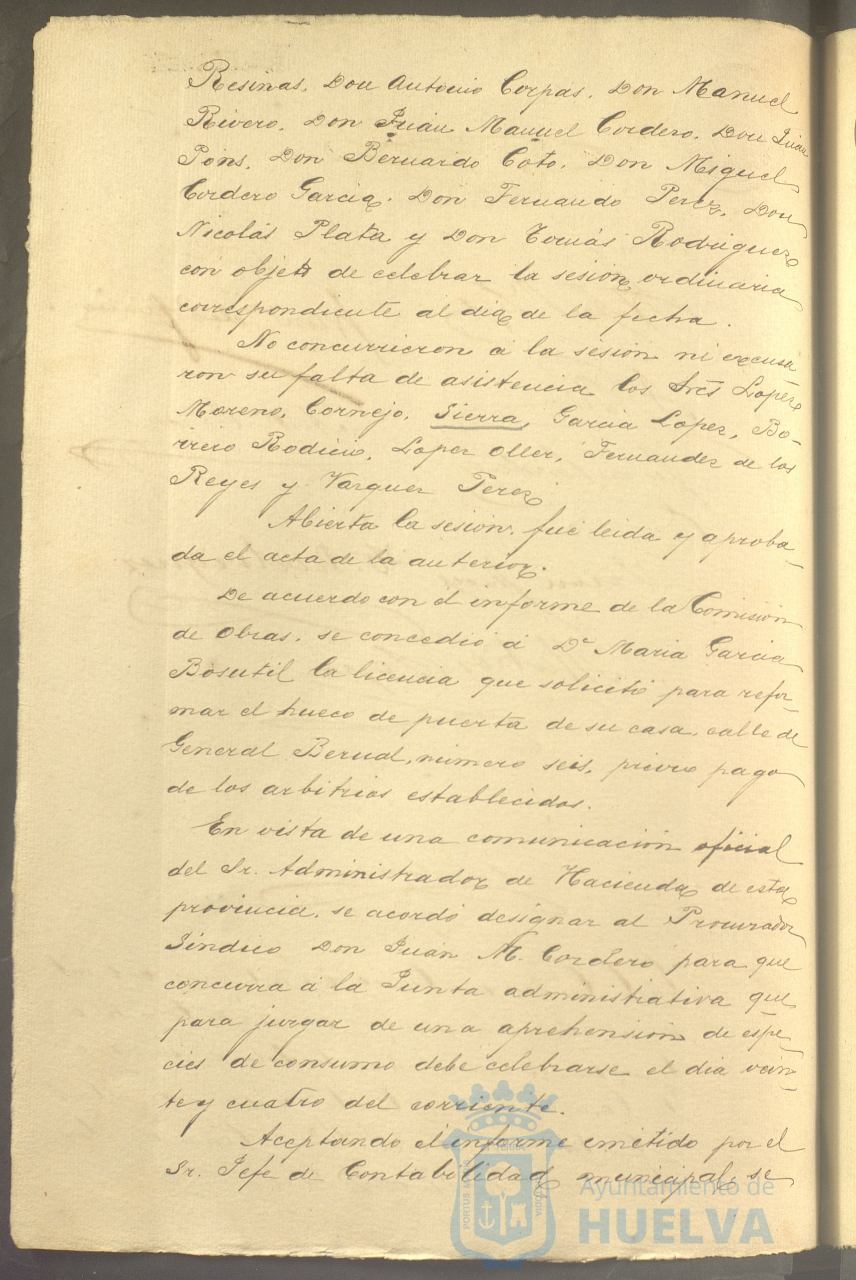 Resinas, Don Antonio Corpas, Don Manuel
Rivero, Don Juan Manuel Cordero, Don Juan
Pons, Don Bernardo Coto, Don Miguel
Cordero Garcia, Don Fernando Perez, Don
Nicolás Plata y Don Tomás Rodriguez
con objeto de celebrar la sesion ordinaria
correspondiente al dia de la fecha.
No concurrieron á la sesion ni excusa
ron su falta de asistencia los Sres Lopez
Moreno, Cornejo, Sierra, Garcia Lopez, Bo-
rrero Rodicio, Lopez Oller, Fernandez de los
Reyes y Vazquez Perez
Abierta la sesión, fué leida y aproba-
da el acta de la anterior.
De acuerdo con el informe de la Comision
de Obras, se concedió á Dª Maria Garcia
la licencia que solicitó para refor-
mar el hueco de puerta de su casa, calle de
General Bernal, número seis, previo pago
de los arbitrios establecidos.
En vista de una comunicación oficial
del Sr. Administrador de Hacienda de esta
provincia, se acordó designar al Procurador
Síndico Don Juan M. Cordero para que
concurra á la Junta administrativa que
para juzgar de una aprehension de espe-
cies de consumo debe celebrarse el dia vein-
te y cuatro del corriente.
Aceptando el informe emitido por el
Sr. Jefe de Contabilidad municipal, se
Ayuntamiento de
HUELVA